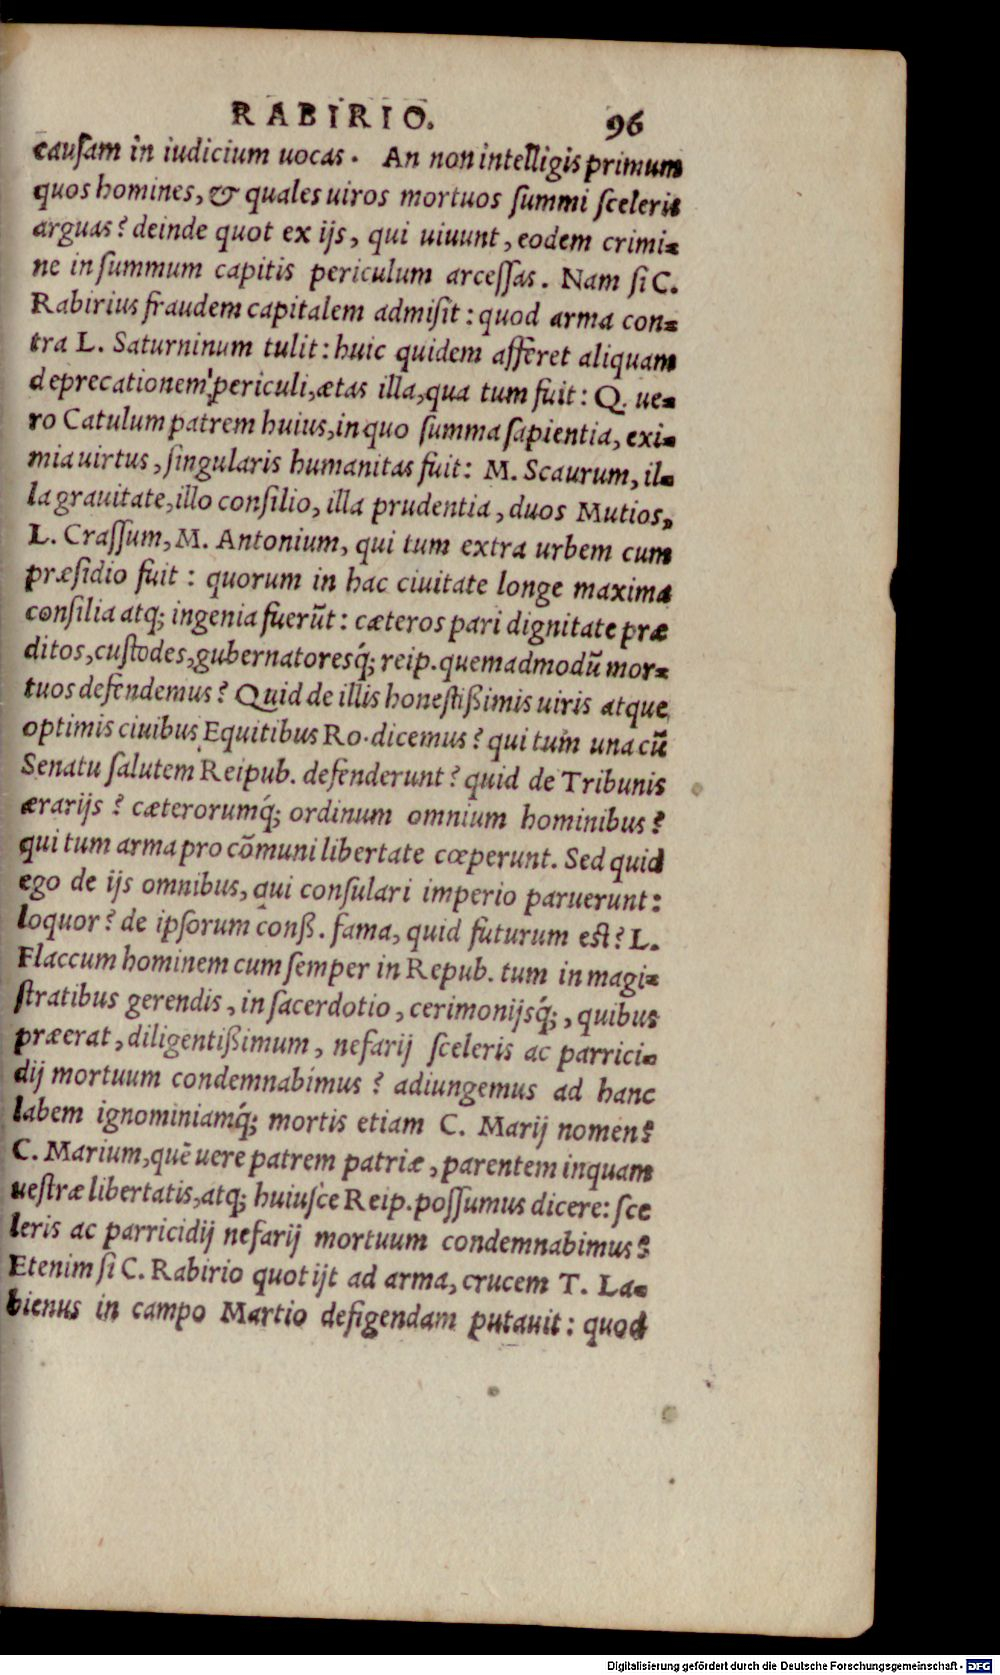 RABIRIO. 96
cauſam in iudicium uocas. An non intelligis primum
quos homines, & quales uiros mortuos ſummi ſceleris
arguas? deinde quot ex ijs, qui uiuunt, eodem crimi=
ne in ſummum capitis periculum arceſſas. Nam ſi C.
Rabirius fraudem capitalem admiſit: quod arma con=
tra L. Saturninum tulit: huic quidem afferet aliquam
deprecationem periculi, ætas illa, qua tum fuit: Q. ue=
ro Catulum patrem huius, in quo ſumma ſapientia, exi=
mia uirtus, ſingularis humanitas fuit: M. Scaurum, il=
la grauitate, illo conſilio, illa prudentia, duos Mutios,
L. Craſſum, M. Antonium, qui tum extra urbem cum
præſidio fuit: quorum in hac ciuitate longe maxima
conſilia atq; ingenia fuerūt: cæteros pari dignitate præ
ditos, cuſtodes, gubernatoresq́; reip. quemadmodū mor=
tuos defendemus? Quid de illis honeſtißimis uiris atque
optimis ciuibus Equitibus Ro. dicemus? qui tum una cū
Senatu ſalutem Reipub. defenderunt? quid de Tribunis
ærarijs? cæterorumq́; ordinum omnium hominibus?
qui tum arma pro cōmuni libertate cœperunt. Sed quid
ego de ijs omnibus, qui conſulari imperio paruerunt:
loquor? de ipſorum conß. fama, quid futurum eſt? L.
Flaccum hominem cum ſemper in Repub. tum in magi=
ſtratibus gerendis, in ſacerdotio, cerimonijsq́;, quibus
præerat, diligentißimum, nefarij ſceleris ac parrici=
dij mortuum condemnabimus? adiungemus ad hanc
labem ignominiamq́; mortis etiam C. Marij nomen?
C. Marium, quē uere patrem patriæ, parentem inquam
ueſtræ libertatis, atq; huiuſce Reip. poſſumus dicere: ſce
leris ac parricidij nefarij mortuum condemnabimus?
Etenim ſi C. Rabirio quot ijt ad arma, crucem T. La=
bienus in campo Martio defigendam putauit: quod
Digitalisierung gefördert durch die Deutsche Forschungsgemeinschaft - DFG